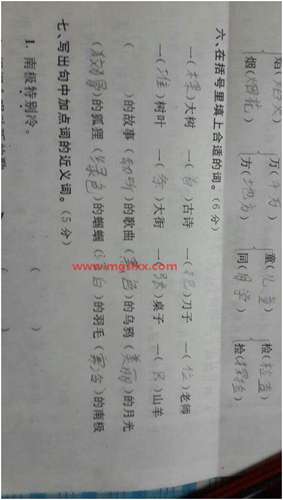 万(千万) 童(儿童) 检(检查)
烟(烟花) 方(地方) 同(同学) 捡(
六、在括号里填上合适的词。(6分)
一(棵)大树 一(首)古诗 一(把)刀子 一(位)老师
一( )树叶 一(条)大街 一(张)桌子 一(只)山羊
( )的故事 (动听)的歌曲 (黑色)的乌鸦 (美丽)的月光
(狡猾)的狐狸 (绿色)的蝈蝈 ( 白)的羽毛 (寒冷)的南极
七、写出句中加点词的近义词。(5分)
1. 南极特别冷。 ( )